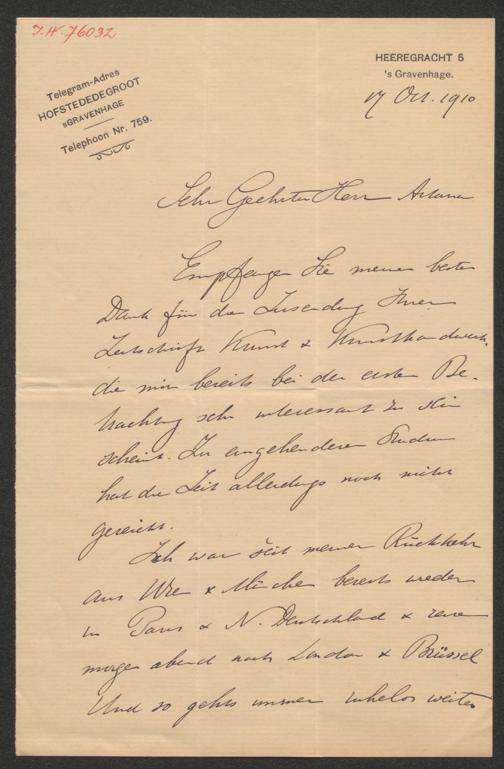 J.N. 76032
Telegram-Adres
HOFSTEDEDEGROOT
sGRAVENHAGE
Telephoon Nr. 759.
HEEREGRACHT 5
's Gravenhage.
17 Oct. 1910
Sehr Geehrter Herr
Empfangen Sie meinen besten
Dank für die Zusendung Ihrer
Zeitschrift Kunst & Kunsthandwerk,
die mir bereits bei der ersten Be-
trachtung sehr interessant zu sein
scheint. Zu eingehenderem Studium
hat die Zeit allerdings noch nicht
gereicht.
Ich war seit meiner Rückkehr
aus Wien & München bereits wieder
in Paris & N. Deutschland & reise
morgen abend nach London & Brüssel
Und so gehts immer ruhelos weiter